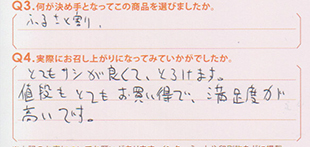 Q3.何が決め手となってこの商品を選びましたか。
ふるさと割。
Q4.実際にお召し上がりになってみていかがでしたか。
とてもサシが良くて、とろけます。
値段もとてもお買い得で、満足度が
高いです。